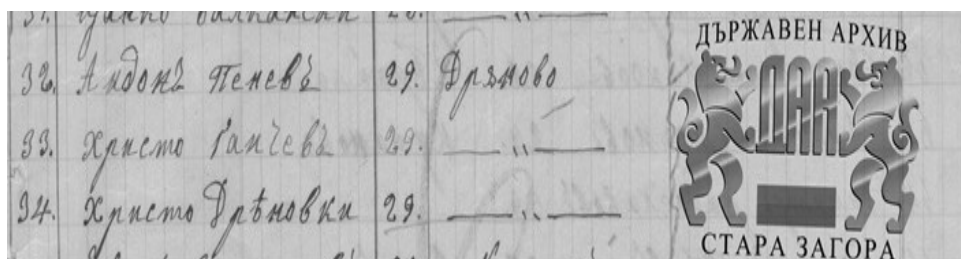 32. Андонъ Пеневъ 29. Дряново
33. Христо Ганчевъ 29. —„—
34. Христо Дрѣновки 29. —„—
ДЪРЖАВЕН АРХИВ
ДАА
СТАРА ЗАГОРА